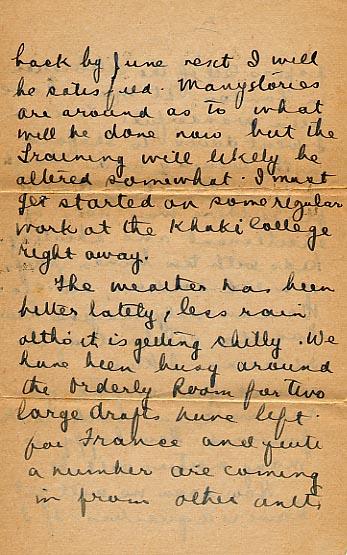 back by June next I will
be satisfied. Many stories
are around as to what
will be done now but the
Training will likely be
altered somewhat. I must
get started on some regular
work at the Khaki College
right away.
The weather has been
better lately, less rain
altho it is getting chilly. We
have been busy around
the Orderly Room for two
large drafts have left
for France and quite
a number are coming
in from other units